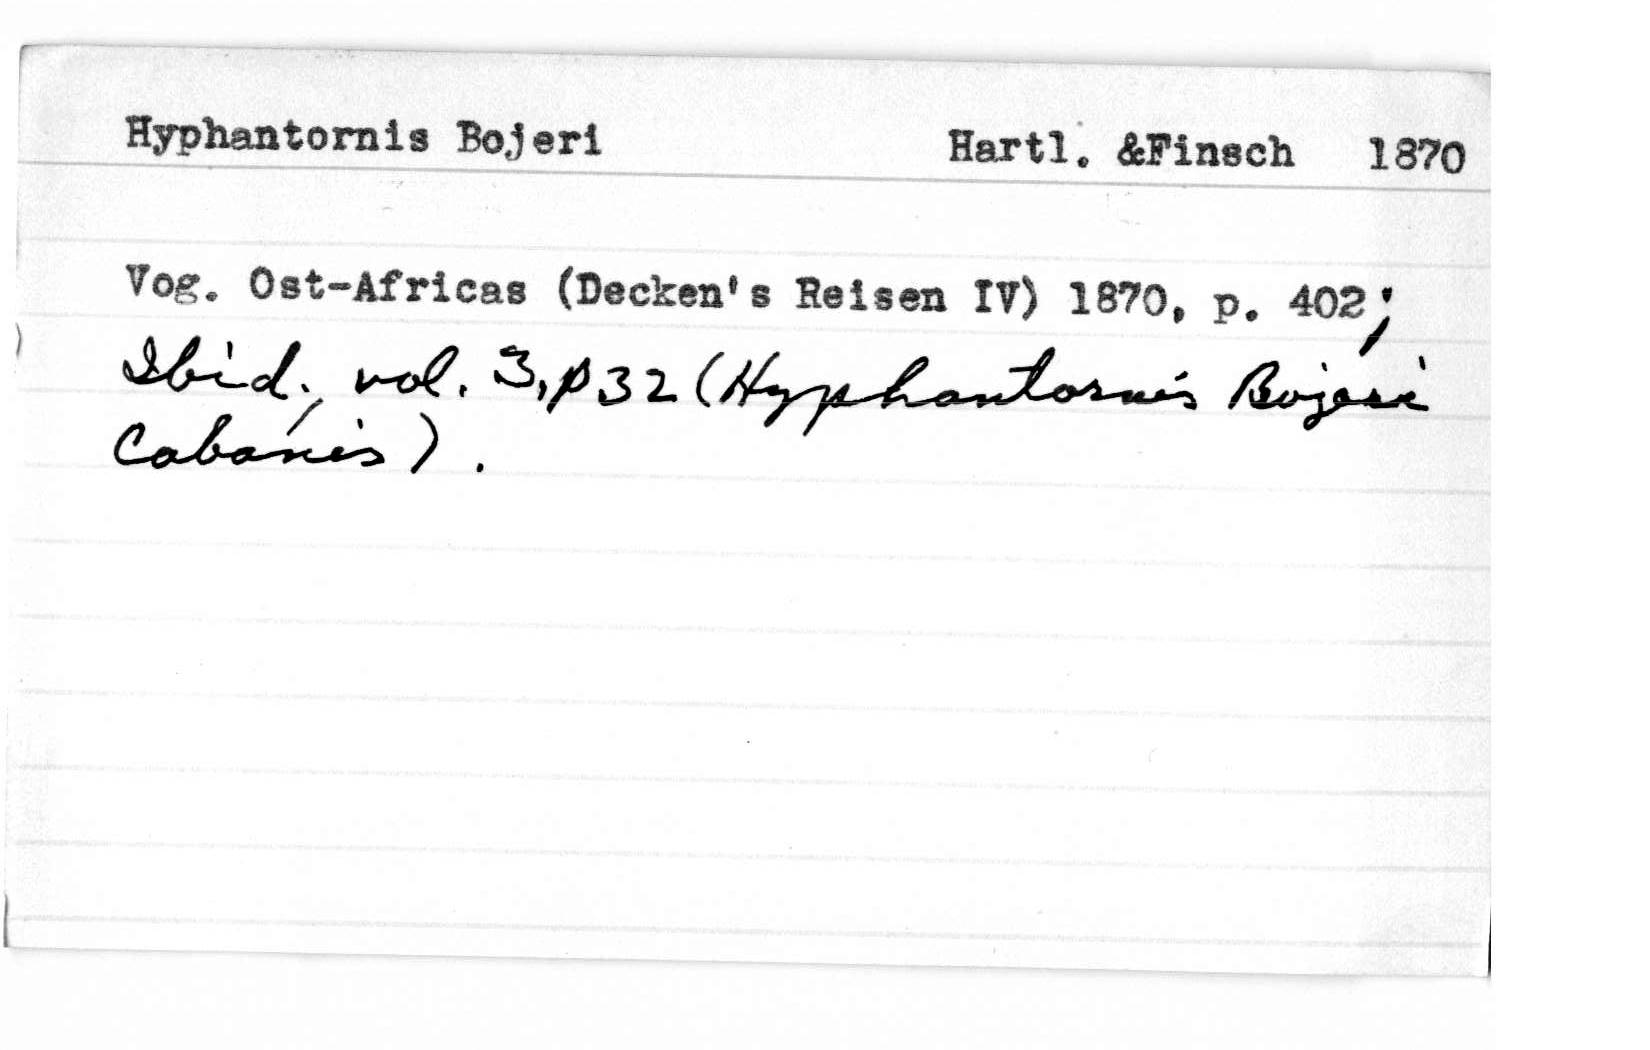 Hyphantornis Bojeri Hartl. &Finsch 1870
Vog. Ost-Africas (Decken's Reisen IV) 1870, p. 402;
Ibid., vol. 3, p32 (Hyphantornis Bojeri
Cabanis).